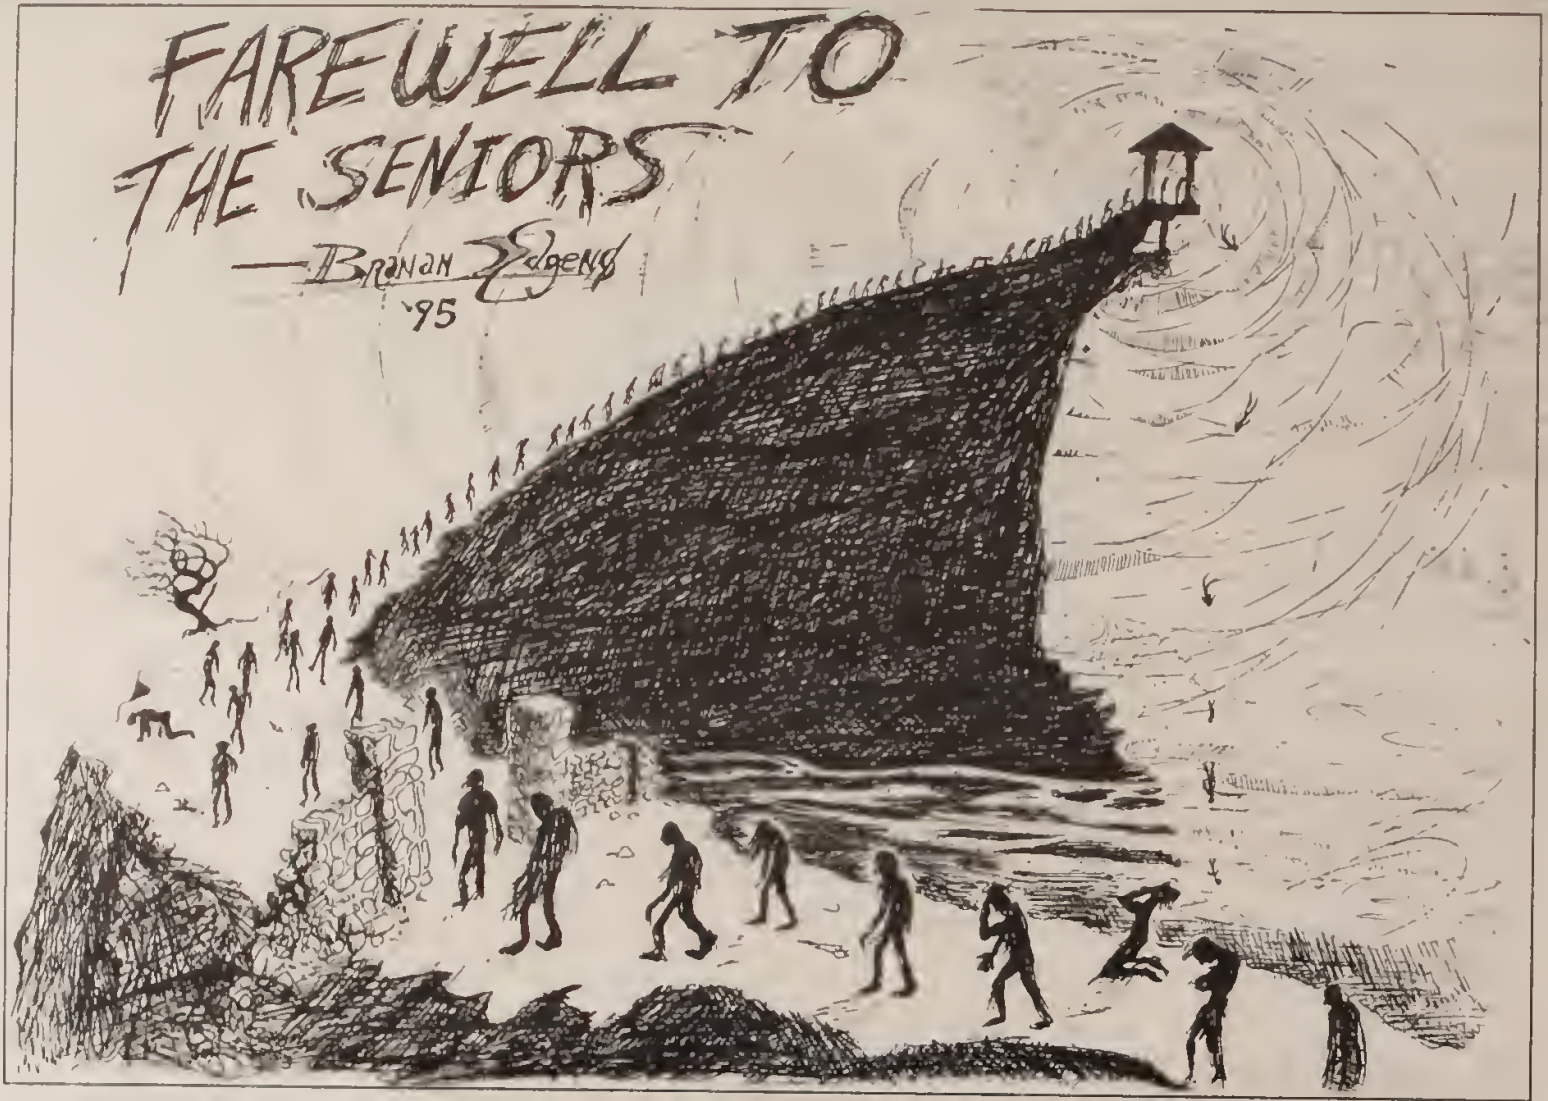 FAREWELL TO
THE SENIORS
—Branan Edgens
'95